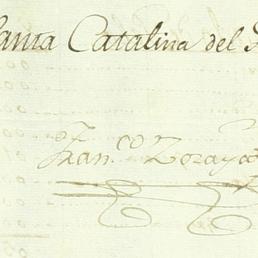 Santa Catalina del
Fran.co Zoraya